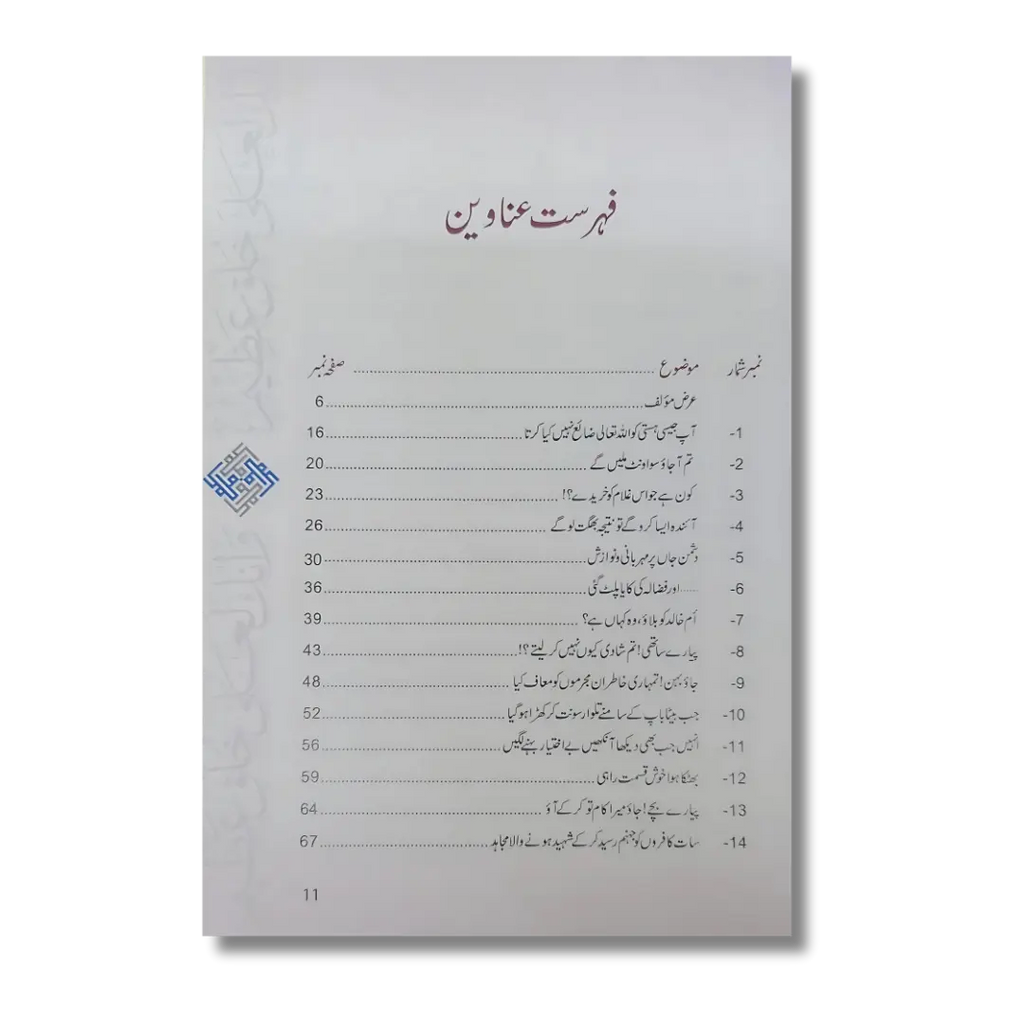 فہرست عناوین
نمبر شمار موضوع ........ صفحہ نمبر
عرض مؤلف ........ 6
1- آپ جیسی ہستی کو اللہ تعالی ضائع نہیں کیا کرتا ........ 16
2- تم آ جاؤ سو اونٹ ملیں گے ........ 20
3- کون ہے جو اس غلام کو خریدے؟! ........ 23
4- آئندہ ایسا کرو گے تو نتیجہ بھگت لو گے ........ 26
5- دشمن جاں پر مہربانی و نوازش ........ 30
6- ...... اور فضالہ کی کایا پلٹ گئی ........ 36
7- اُم خالد کو بلاؤ، وہ کہاں ہے؟ ........ 39
8- پیارے ساتھی! تم شادی کیوں نہیں کر لیتے؟! ........ 43
9- جاؤ بہن! تمہاری خاطر ان مجرموں کو معاف کیا ........ 48
10- جب بیٹا باپ کے سامنے تلوار سونت کر کھڑا ہو گیا ........ 52
11- انہیں جب بھی دیکھا آنکھیں بے اختیار بہنے لگیں ........ 56
12- بھٹکا ہوا خوش قسمت راہی ........ 59
13- پیارے بچے! جاؤ میرا کام تو کر کے آؤ ........ 64
14- سات کافروں کو جہنم رسید کر کے شہید ہونے والا مجاہد ........ 67
11